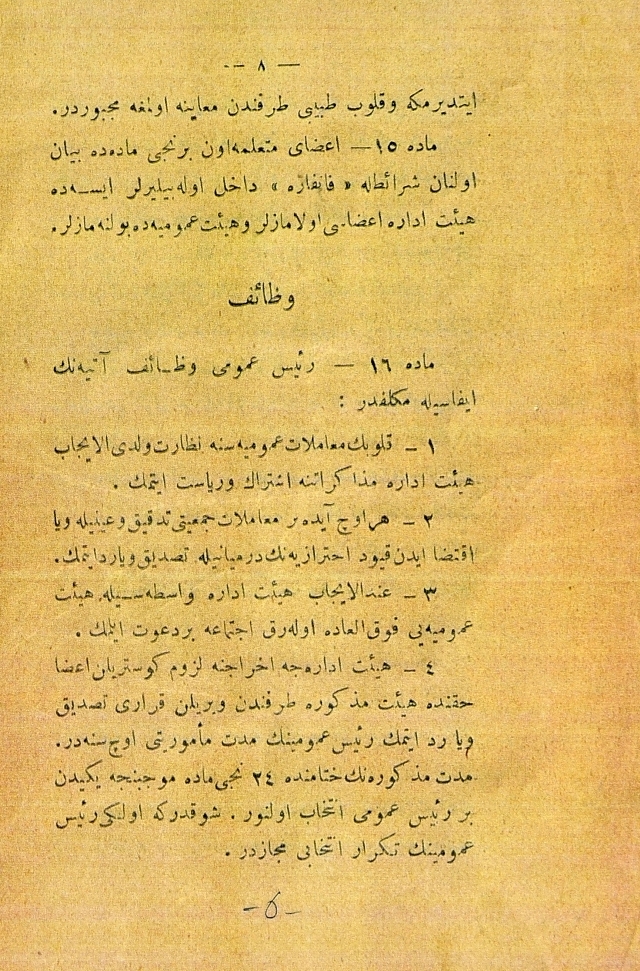 — ٨ —
ايتديرمكه وقلوب طبيبى طرفندن معاينه اولمغه مجبوردر.
ماده ١٥ — اعضاى متعلمه اون برنجى ماده‌ده بيان
اولنان شرائطله « فانفاره » داخل اوله‌بيليرلر ايسه‌ده
هيئت اداره اعضاسى اولامازلر وهيئت عموميه‌ده بولنه‌مازلر.
وظائف
ماده ١٦ — رئيس عمومى وظائف آتيه‌نك
ايفاسيله مكلفدر :
١ ـ قلوبك معاملات عموميه‌سنه نظارت ولدى الايجاب
هيئت اداره مذاكراتنه اشتراك ورياست ايتمك .
٢ ـ هر اوچ آيده بر معاملات جمعيتى تدقيق وعينيله ويا
اقتضا ايدن قيود احترازيه‌نك درميانيله تصديق ويا رد ايتمك.
٣ ـ عندالايجاب هيئت اداره واسطه‌سيله هيئت
عموميه‌يى فوق‌العاده اوله‌رق اجتماعه بر دعوت ايتمك .
٤ ـ هيئت اداره‌جه اخراجنه لزوم كوستريلن اعضا
حقنده هيئت مذكوره طرفندن ويريلن قرارى تصديق
ويا رد ايتمك رئيس عمومينك مدت مأموريتى اوچ سنه‌در.
مدت مذكوره‌نك ختامنده ٢٤ نجى ماده موجبنجه يكيدن
بر رئيس عمومى انتخاب اولنور . شو قدركه اولكى رئيس
عمومينك تكرار انتخابى مجازدر .